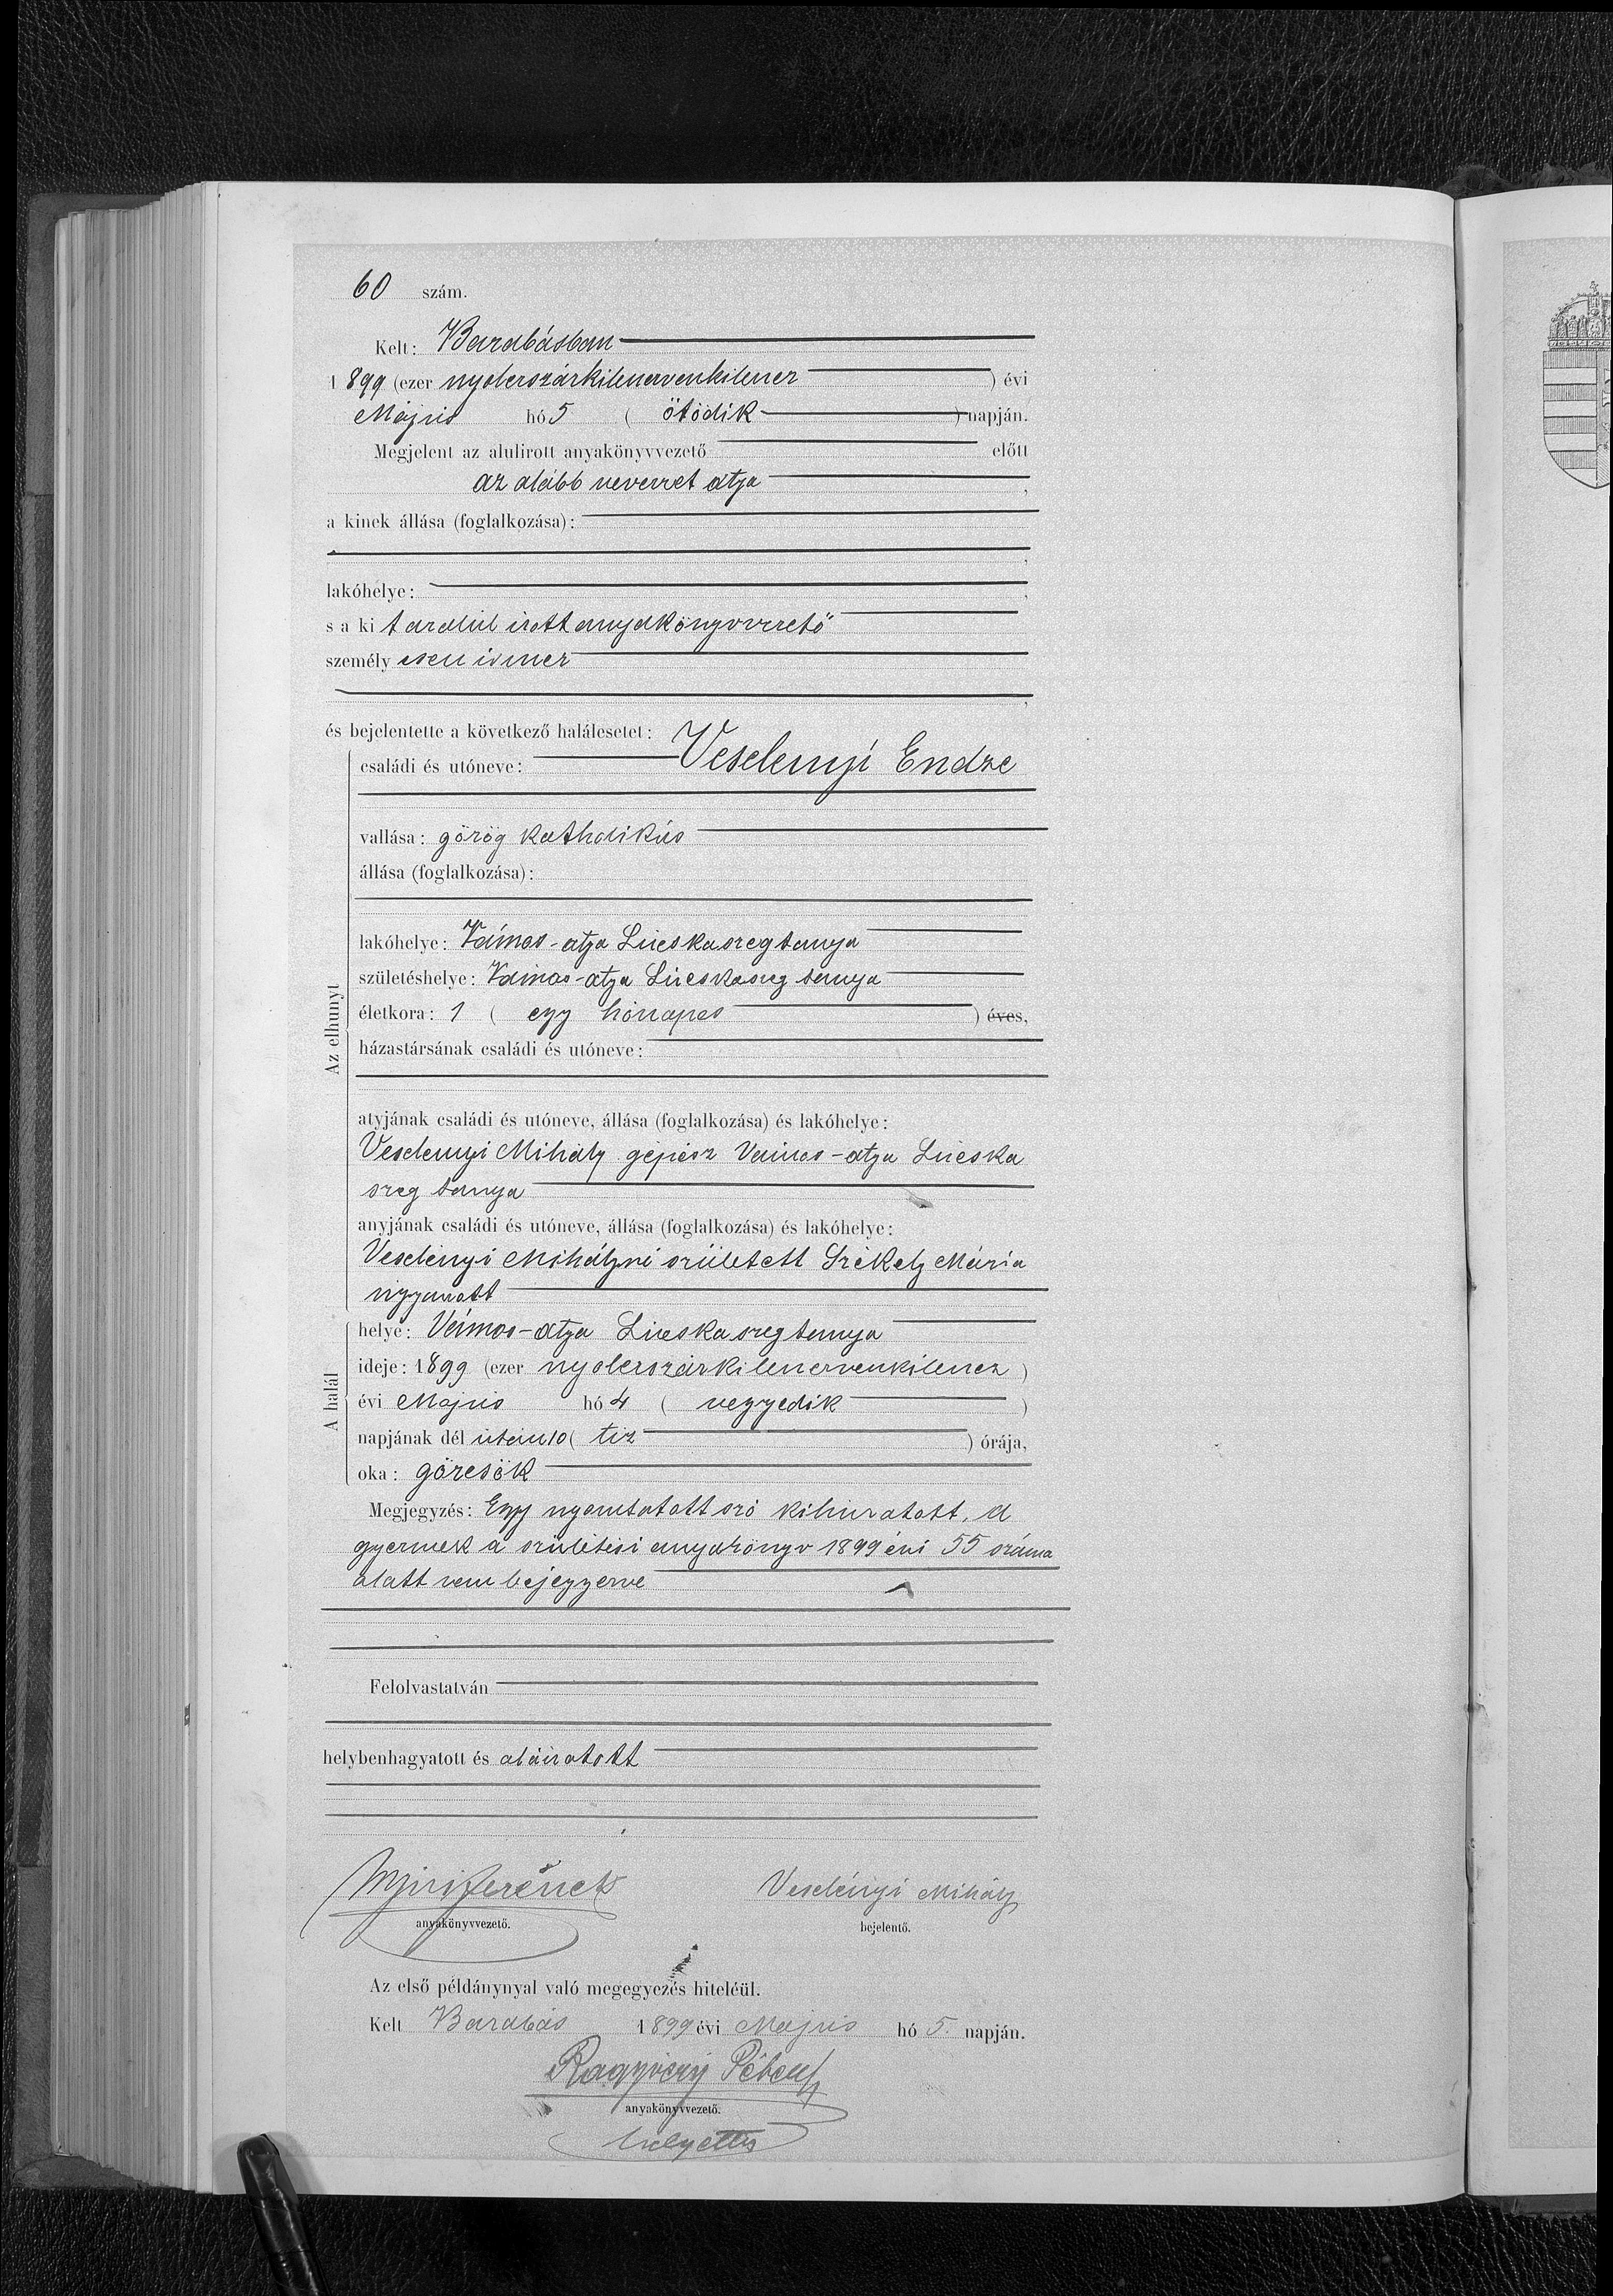 60 szám.
Kelt: Barabásban
1899 (ezer nyolcszázkilencvenkilencz ) évi
Május hó 5 ( ötödik ) napján.
Megjelent az alulirott anyakönyvvezető előtt
az alább nevezet atya ,
a kinek állása (foglalkozása):
,
lakóhelye: ,
s a ki t azalúl irott anyakönyvvezető
személyesen ismer
,
és bejelentette a következő halálesetet:
családi és utóneve: Veselenyi Endre
Az elhunyt
vallása: görög katholikús
állása (foglalkozása):
lakóhelye: Vámos-atya Lúcskaszegtanya
születéshelye: Vámos-atya Lúcskaszeg tanya
életkora: 1 ( egy hónapos ) éves,
házastársának családi és utóneve:
atyjának családi és utóneve, állása (foglalkozása) és lakóhelye:
Veselenyi Mihály gépész Vámos-atya Lúcska
szeg tanya
anyjának családi és utóneve, állása (foglalkozása) és lakóhelye:
Veselényi Mihályné született Székely Mária
úgyanott
A halál
helye: Vámos-atya Lúcskaszegtanya
ideje: 1899 (ezer nyolczszázkilenczvenkilencz )
évi Május hó 4 ( negyedik )
napjának dél útán 10 ( tíz ) órája,
oka: görcsök
Megjegyzés: Egy nyomtatott szó kihúzatott, A
gyermek a születési anyakönyv 1899 évi 55 száma
alatt van bejegyezve
Felolvastatván
helybenhagyatott és aláiratott
Veselényi Mihály
anyakönyvvezető. bejelentő.
Az első példánynyal való megegyezés hiteléül.
Kelt Barabás 1899 évi Május hó 5. napján.
anyakönyvvezető.
helyettes